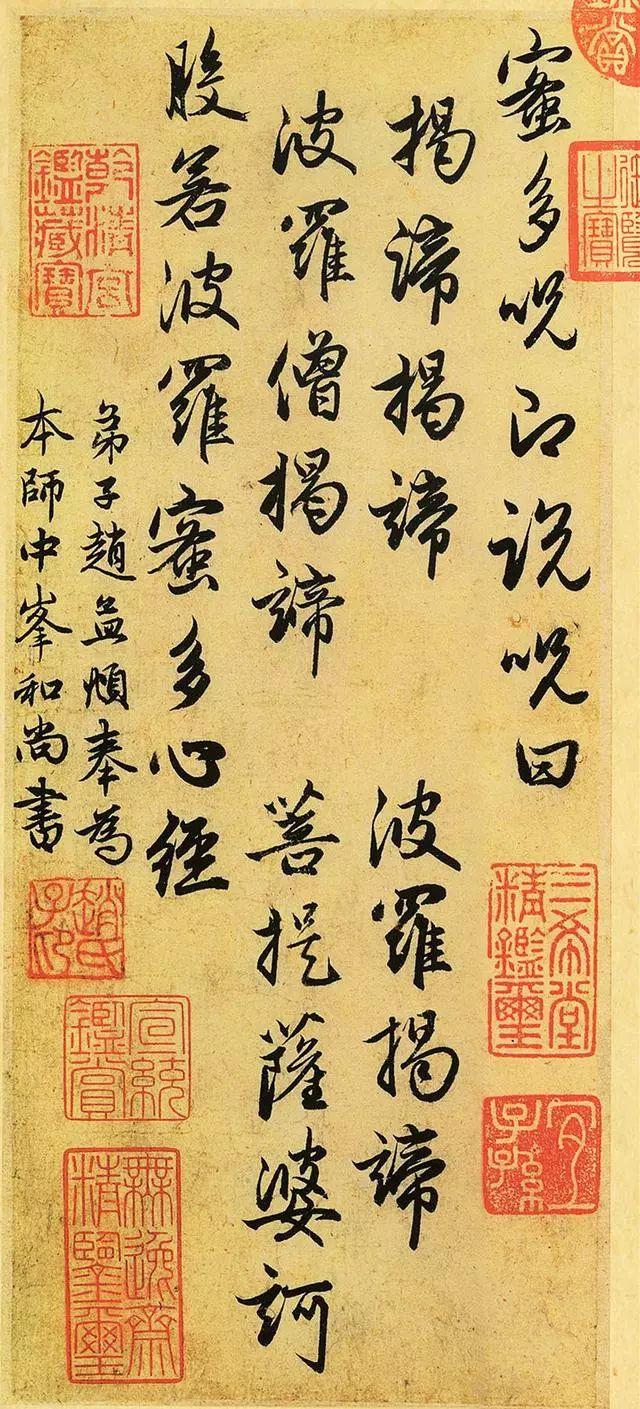 蜜多呪即説呪曰
揭諦揭諦　波羅揭諦
波羅僧揭諦　菩提薩婆訶
般若波羅蜜多心經
弟子趙孟頫奉為
本師中峯和尚書
三希堂
精鑑璽
宜
子孫
乾清宮
鑑藏寶
趙氏
子昂
宣統
鑑賞
無逸齋
精鑒璽